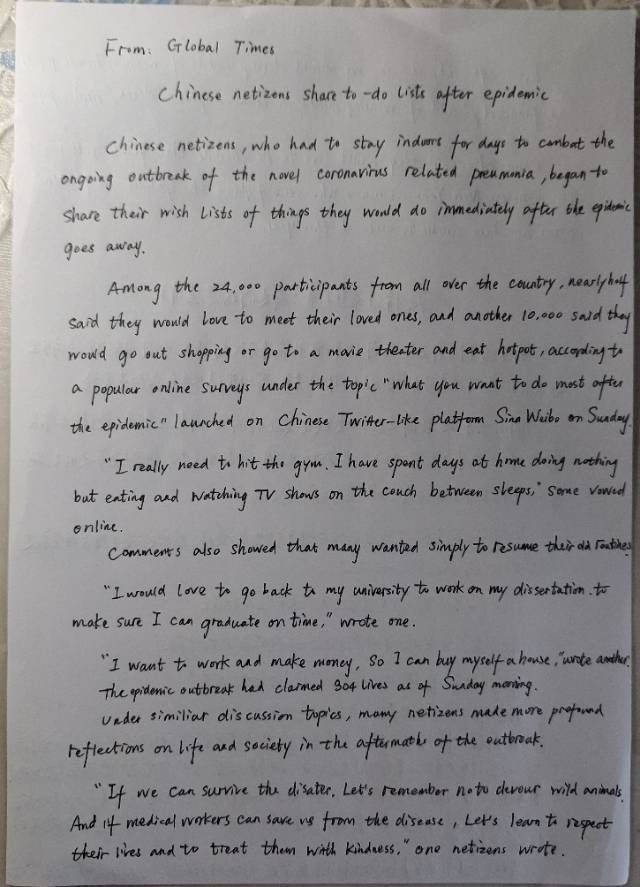 From: Global Times
Chinese netizens share to-do lists after epidemic
Chinese netizens, who had to stay indoors for days to combat the
ongoing outbreak of the novel coronavirus related pneumonia, began to
share their wish lists of things they would do immediately after the epidemic
goes away.
Among the 24,000 participants from all over the country, nearly half
said they would love to meet their loved ones, and another 10,000 said they
would go out shopping or go to a movie theater and eat hotpot, according to
a popular online surveys under the topic "what you want to do most after
the epidemic" launched on Chinese Twitter-like platform Sina Weibo on Sunday.
"I really need to hit the gym. I have spent days at home doing nothing
but eating and watching TV shows on the couch between sleeps," some vowed
online.
Comments also showed that many wanted simply to resume their old routines.
"I would love to go back to my university to work on my dissertation. to
make sure I can graduate on time," wrote one.
"I want to work and make money, so I can buy myself a house," wrote another.
The epidemic outbreak had claimed 304 lives as of Sunday morning.
Under similiar discussion topics, many netizens made more profound
reflections on life and society in the aftermaths of the outbreak.
"If we can survive the disater. Let's remember no to devour wild animals.
And if medical workers can save us from the disease, Let's learn to respect
their lives and to treat them with kindness," one netizens wrote.